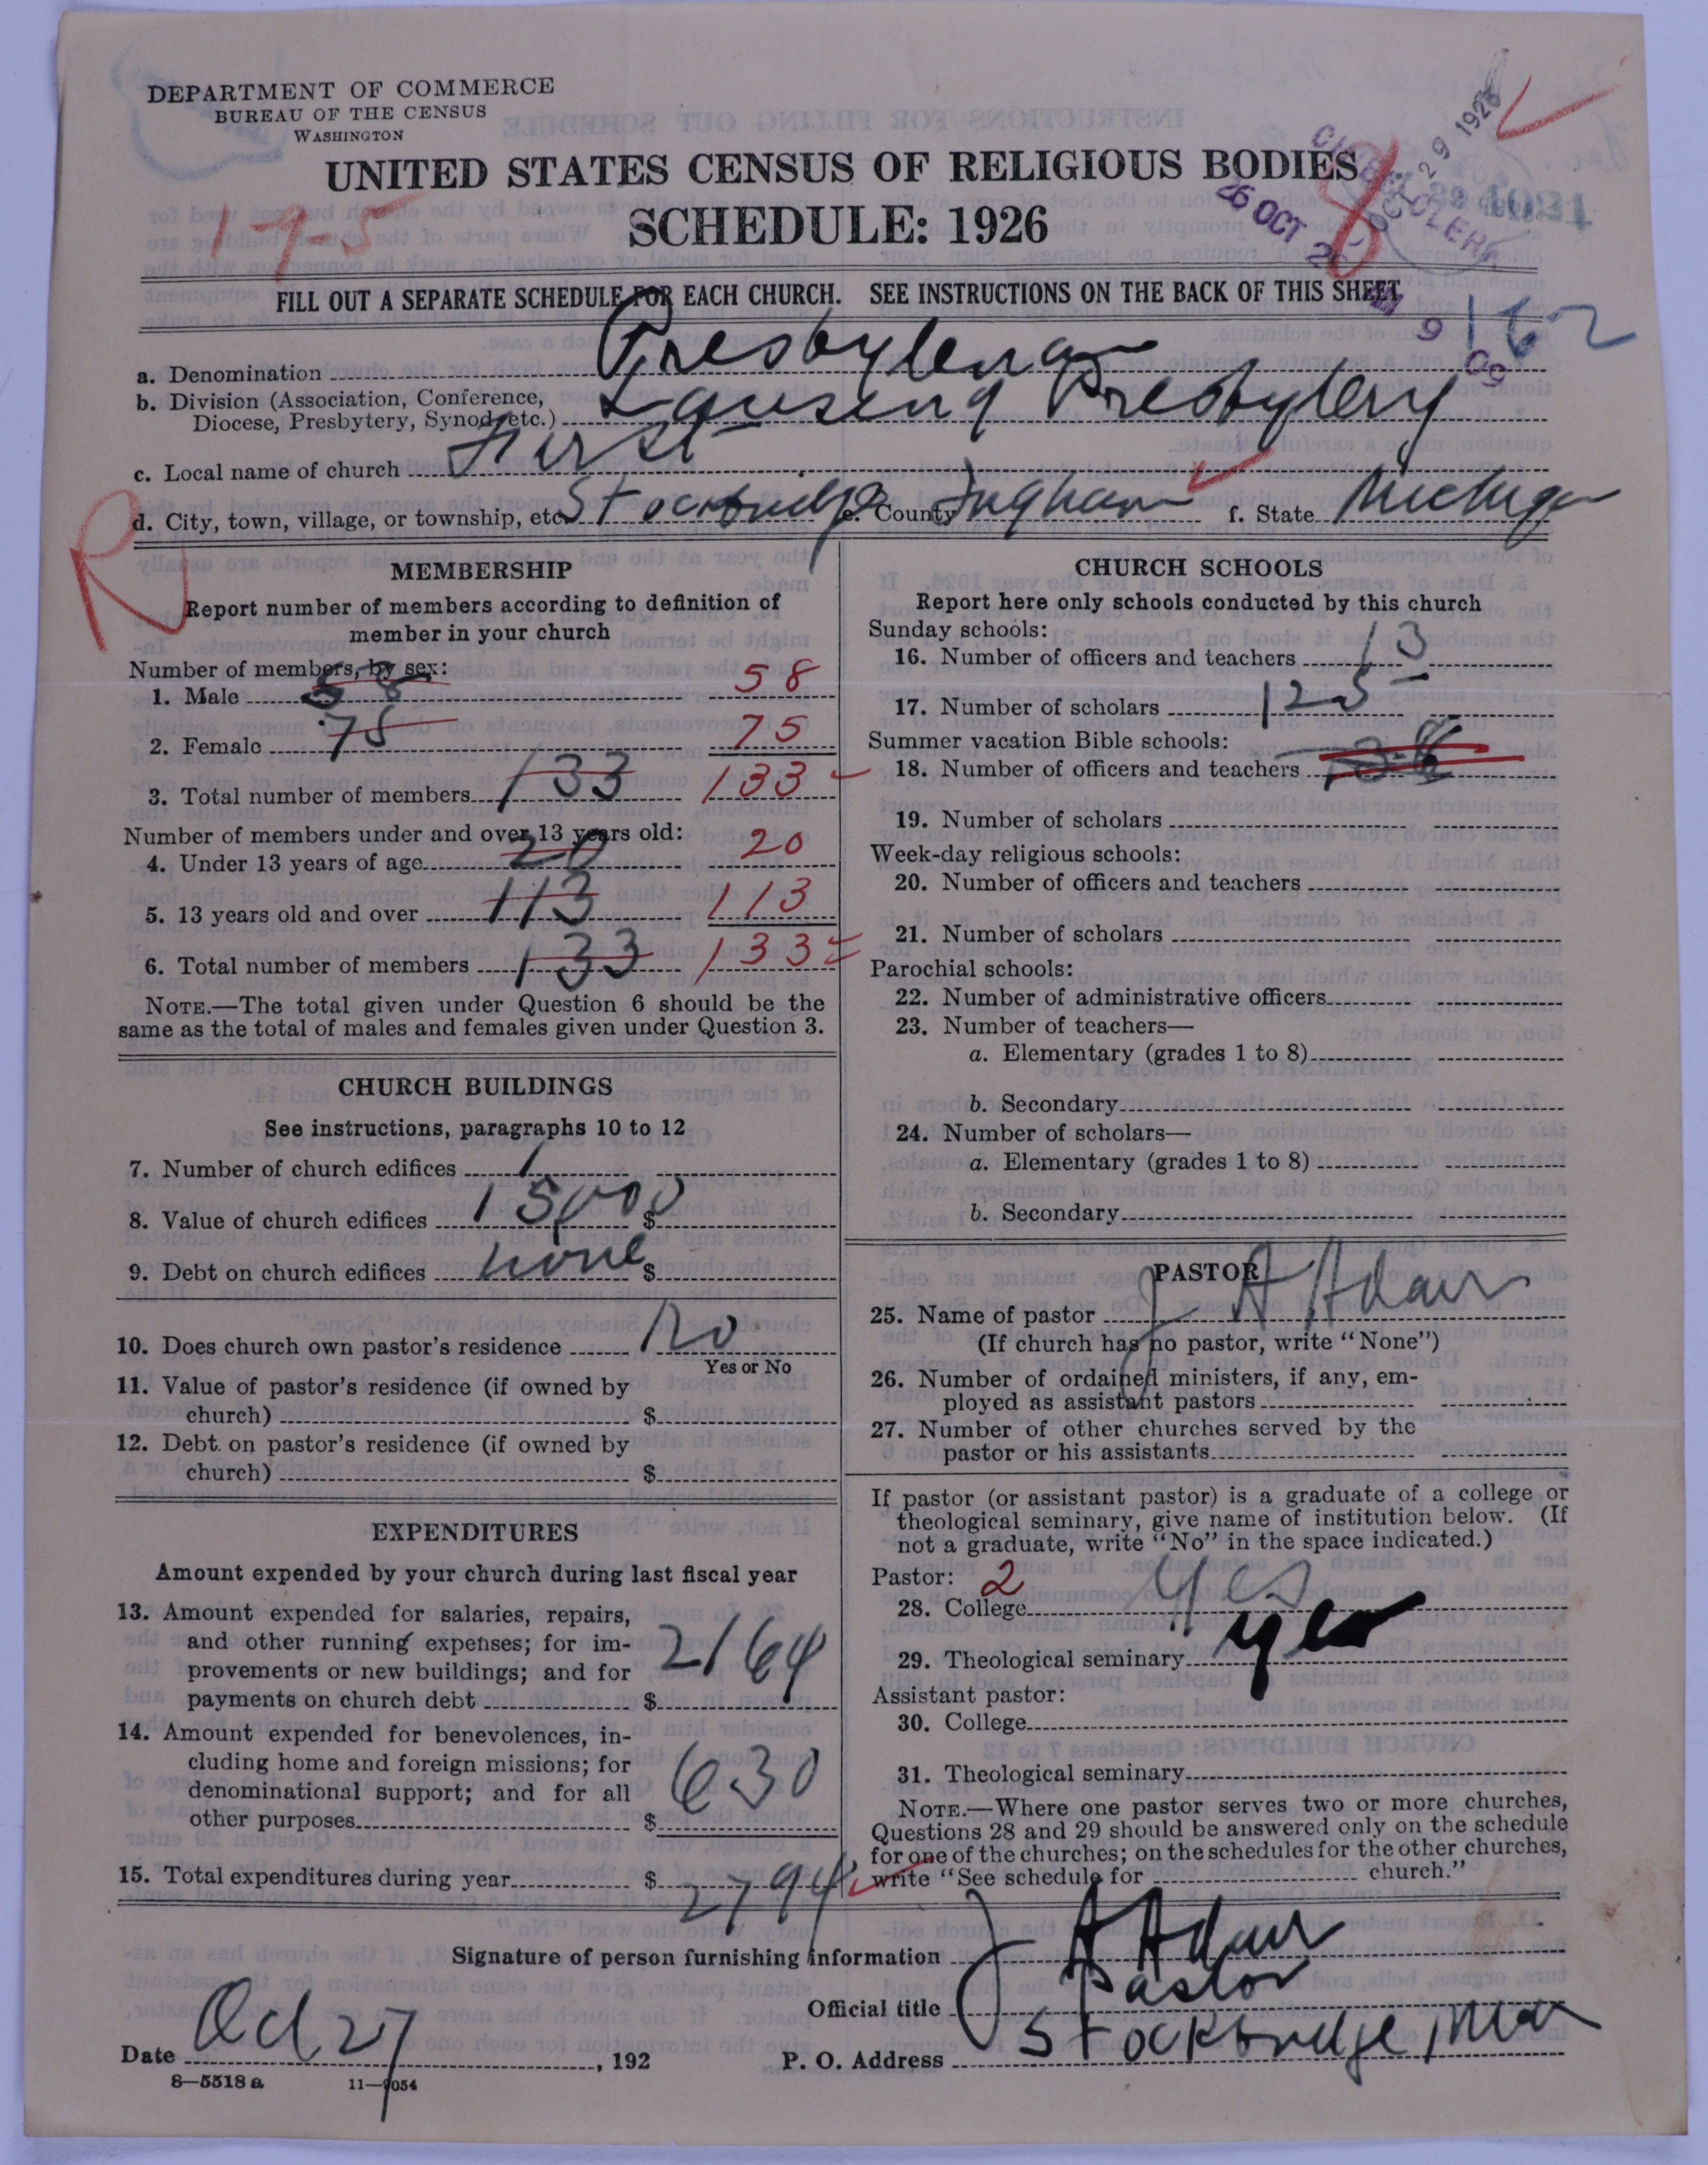 DEPARTMENT OF COMMERCE
BUREAU OF THE CENSUS
WASHINGTON
UNITED STATES CENSUS OF RELIGIOUS BODIES
SCHEDULE: 1926
1-9-5
8
OCT 29 1926
26 OCT
162
FILL OUT A SEPARATE SCHEDULE FOR EACH CHURCH. SEE INSTRUCTIONS ON THE BACK OF THIS SHEET
a. Denomination Presbyterian
b. Division (Association, Conference, Diocese, Presbytery, Synod, etc.) Lansing Presbytery
c. Local name of church First
d. City, town, village, or township, etc. Stockbridge e. County Ingham f. State Michigan
R
MEMBERSHIP
Report number of members according to definition of
member in your church
Number of members, by sex:
1. Male 58 58
2. Female 75 75
3. Total number of members 133 133
Number of members under and over 13 years old:
4. Under 13 years of age 20 20
5. 13 years old and over 113 113
6. Total number of members 133 133
NOTE.—The total given under Question 6 should be the
same as the total of males and females given under Question 3.
CHURCH BUILDINGS
See instructions, paragraphs 10 to 12
7. Number of church edifices 1
8. Value of church edifices 15,000 $
9. Debt on church edifices none $
10. Does church own pastor's residence No
Yes or No
11. Value of pastor's residence (if owned by
church) $
12. Debt on pastor's residence (if owned by
church) $
EXPENDITURES
Amount expended by your church during last fiscal year
13. Amount expended for salaries, repairs,
and other running expenses; for im-
provements or new buildings; and for
payments on church debt $ 2164
14. Amount expended for benevolences, in-
cluding home and foreign missions; for
denominational support; and for all
other purposes $ 630
15. Total expenditures during year $ 2794
CHURCH SCHOOLS
Report here only schools conducted by this church
Sunday schools:
16. Number of officers and teachers 13
17. Number of scholars 125
Summer vacation Bible schools:
18. Number of officers and teachers
19. Number of scholars
Week-day religious schools:
20. Number of officers and teachers
21. Number of scholars
Parochial schools:
22. Number of administrative officers
23. Number of teachers—
a. Elementary (grades 1 to 8)
b. Secondary
24. Number of scholars—
a. Elementary (grades 1 to 8)
b. Secondary
PASTOR
25. Name of pastor J A Adair
(If church has no pastor, write "None")
26. Number of ordained ministers, if any, em-
ployed as assistant pastors
27. Number of other churches served by the
pastor or his assistants
If pastor (or assistant pastor) is a graduate of a college or
theological seminary, give name of institution below. (If
not a graduate, write "No" in the space indicated.)
Pastor: 2
28. College Yes
29. Theological seminary yes
Assistant pastor:
30. College
31. Theological seminary
NOTE.—Where one pastor serves two or more churches,
Questions 28 and 29 should be answered only on the schedule
for one of the churches; on the schedules for the other churches,
write "See schedule for church."
Signature of person furnishing information J A Adair
Official title Pastor
Date Oct 27, 192 P. O. Address Stockbridge, Mich
8—5518 a 11—9054